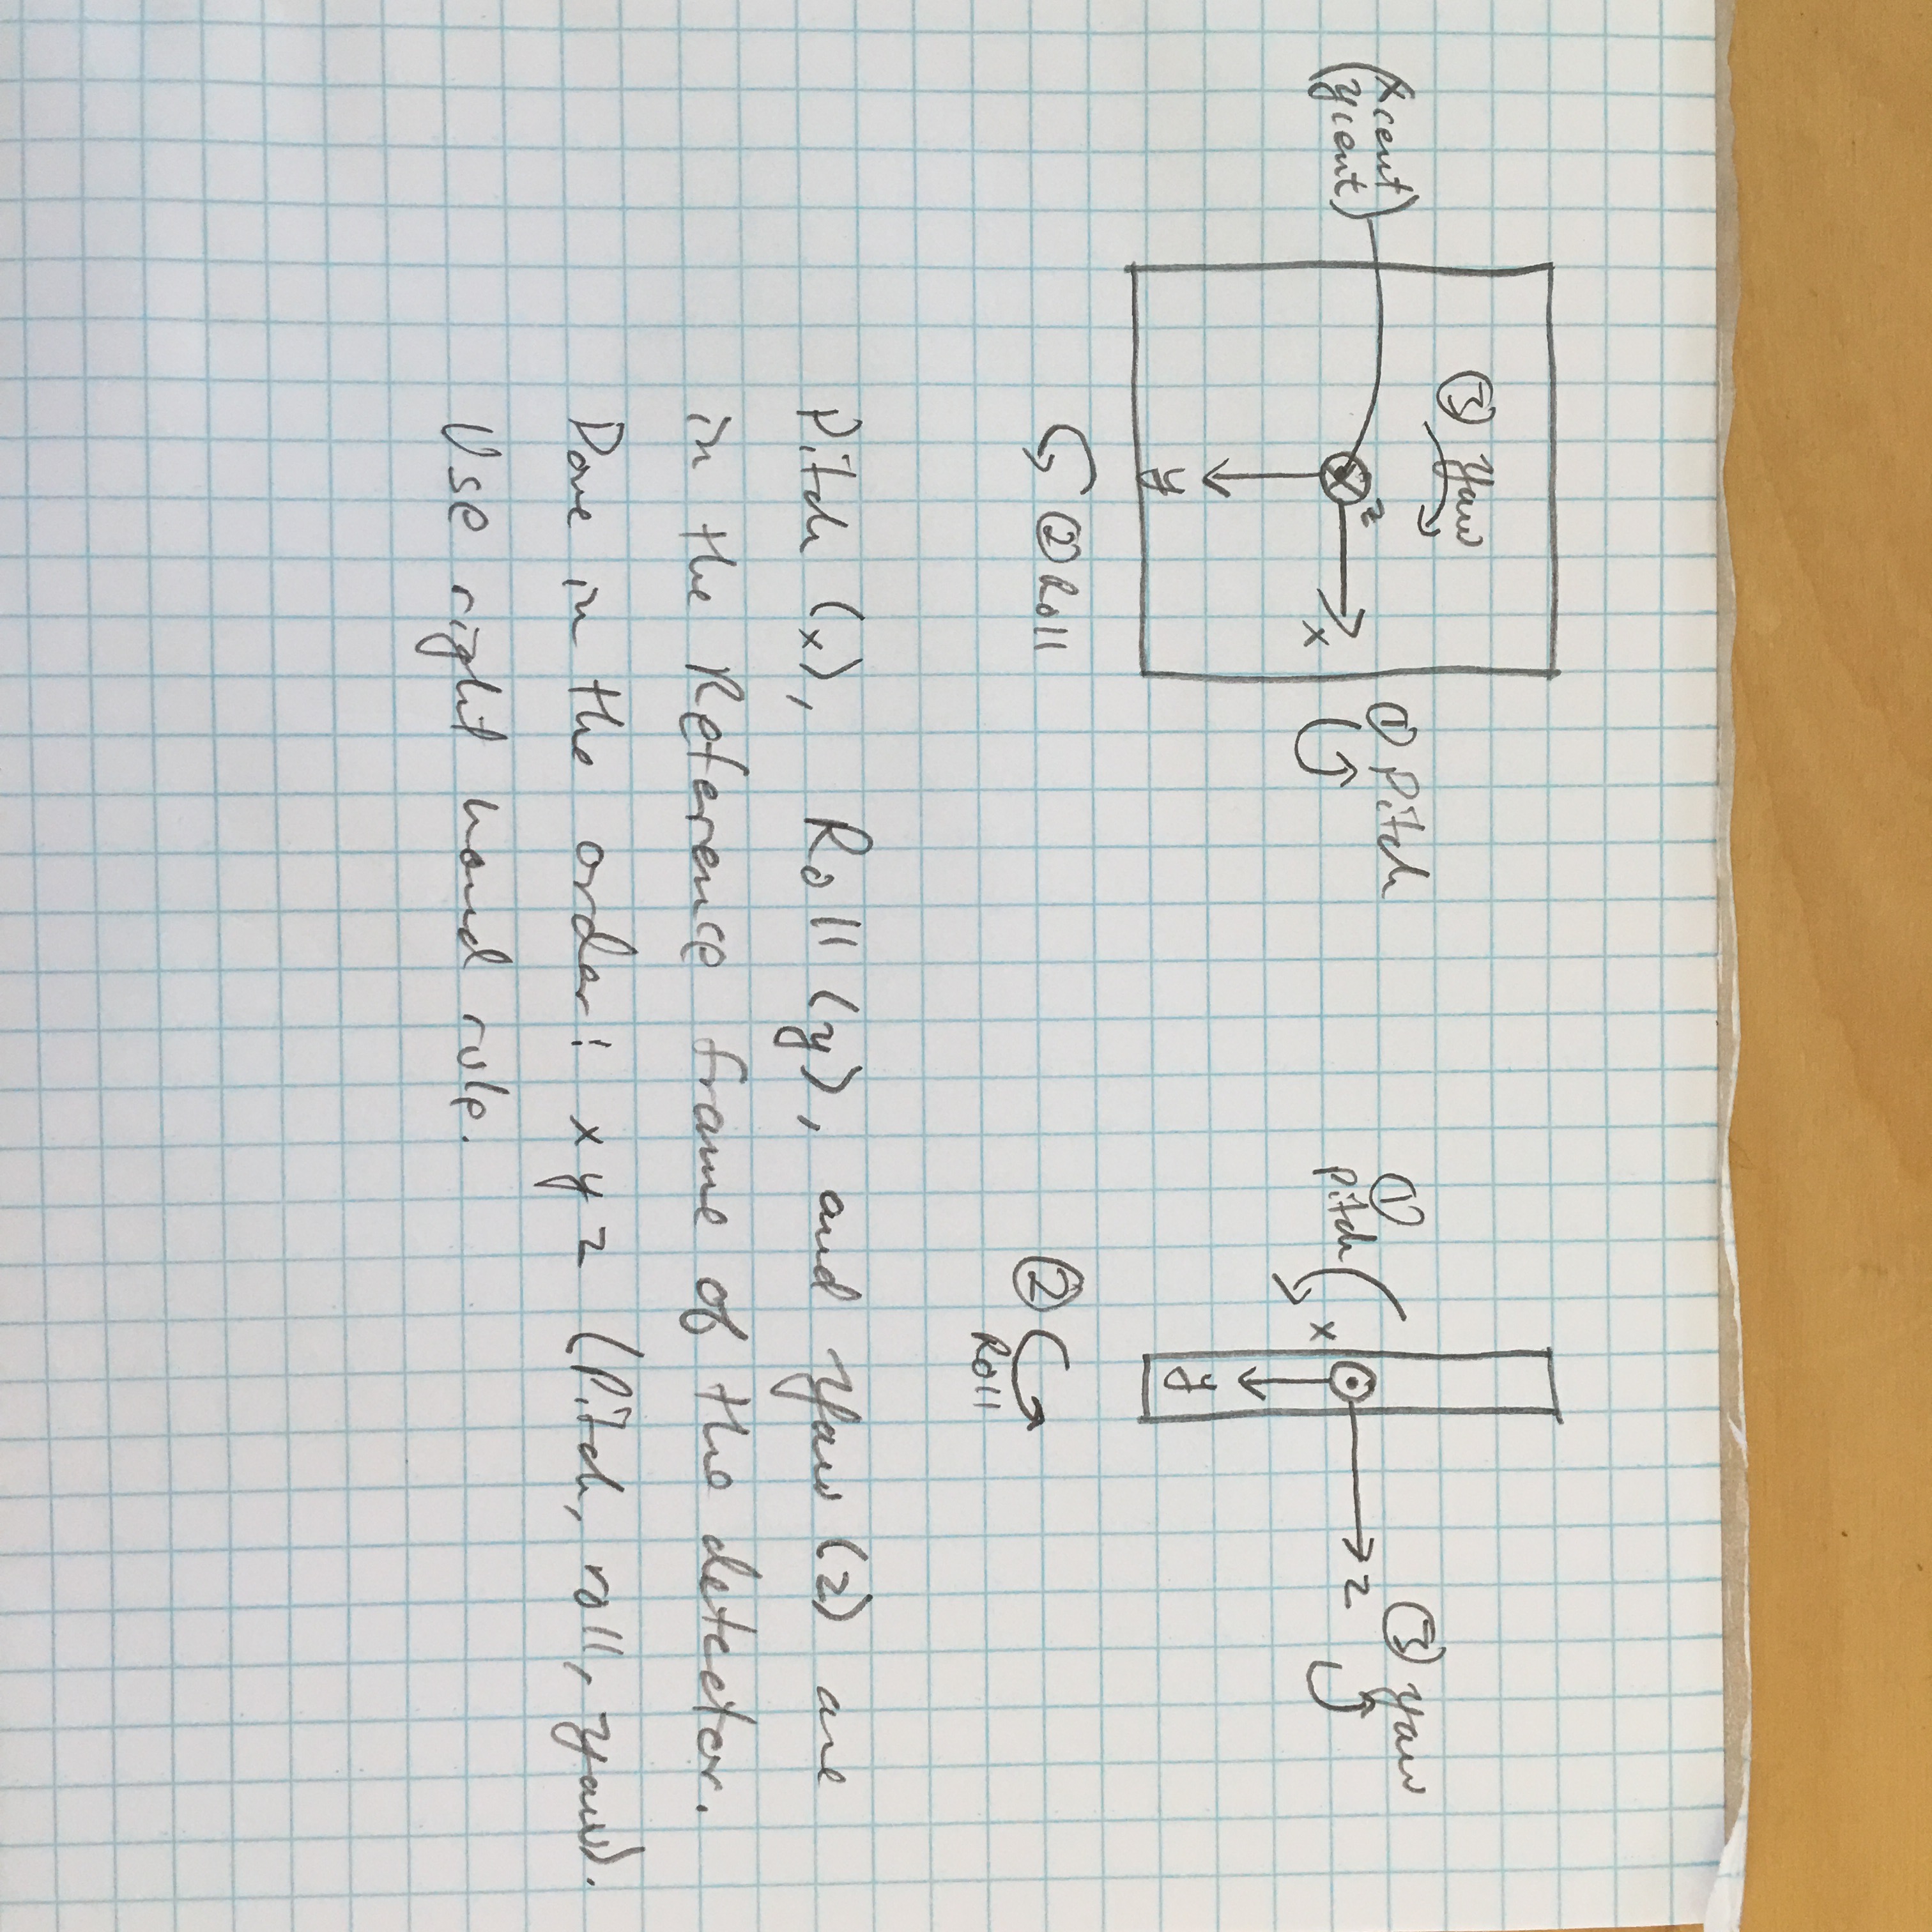 (xcent
ycent)
③ Yaw
z
x
y
① Pitch
② Roll
① Pitch
x
y
z
③ Yaw
②
Roll
Pitch (x), Roll (y), and Yaw (z) are
in the Reference frame of the detector.
Done in the order: x y z (Pitch, roll, yaw).
Use right hand rule.